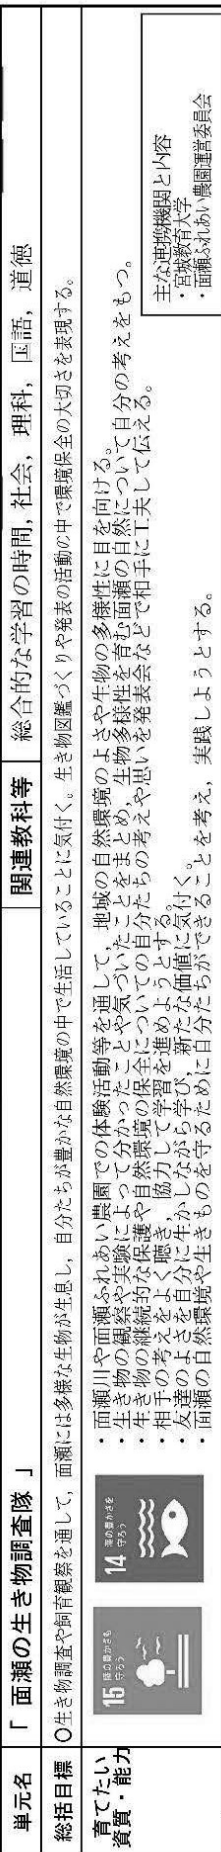 単元名
「 面瀬の生き物調査隊 」
関連教科等
総合的な学習の時間，社会，理科，国語，道徳
総括目標
○生き物調査や飼育観察を通して，面瀬には多様な生物が生息し，自分たちが豊かな自然環境の中で生活していることに気付く。生き物図鑑づくりや発表の活動の中で環境保全の大切さを表現する。
育てたい
資質・能力
15 陸の豊かさも
守ろう
14 海の豊かさを
守ろう
・面瀬川や面瀬ふれあい農園での体験活動等を通して，地域の自然環境のよさや生物の多様性に目を向ける。
・生き物の観察や実験によって分かったことや気づいたことをまとめ，生物多様性を育む面瀬の自然について自分の考えをもつ。
・生き物の継続的な保護や自然環境の保全についての自分たちの考えや思いを発表会などで相手に工夫して伝える。
・相手の考えをよく聴き，協力して学習を進めようとする。
・友達のよさを自分に生かしながら学び，新たな価値に気付く。
・面瀬の自然環境や生きものを守るために自分たちができることを考え，実践しようとする。
主な連携機関と内容
・宮城教育大学
・面瀬ふれあい農園運営委員会